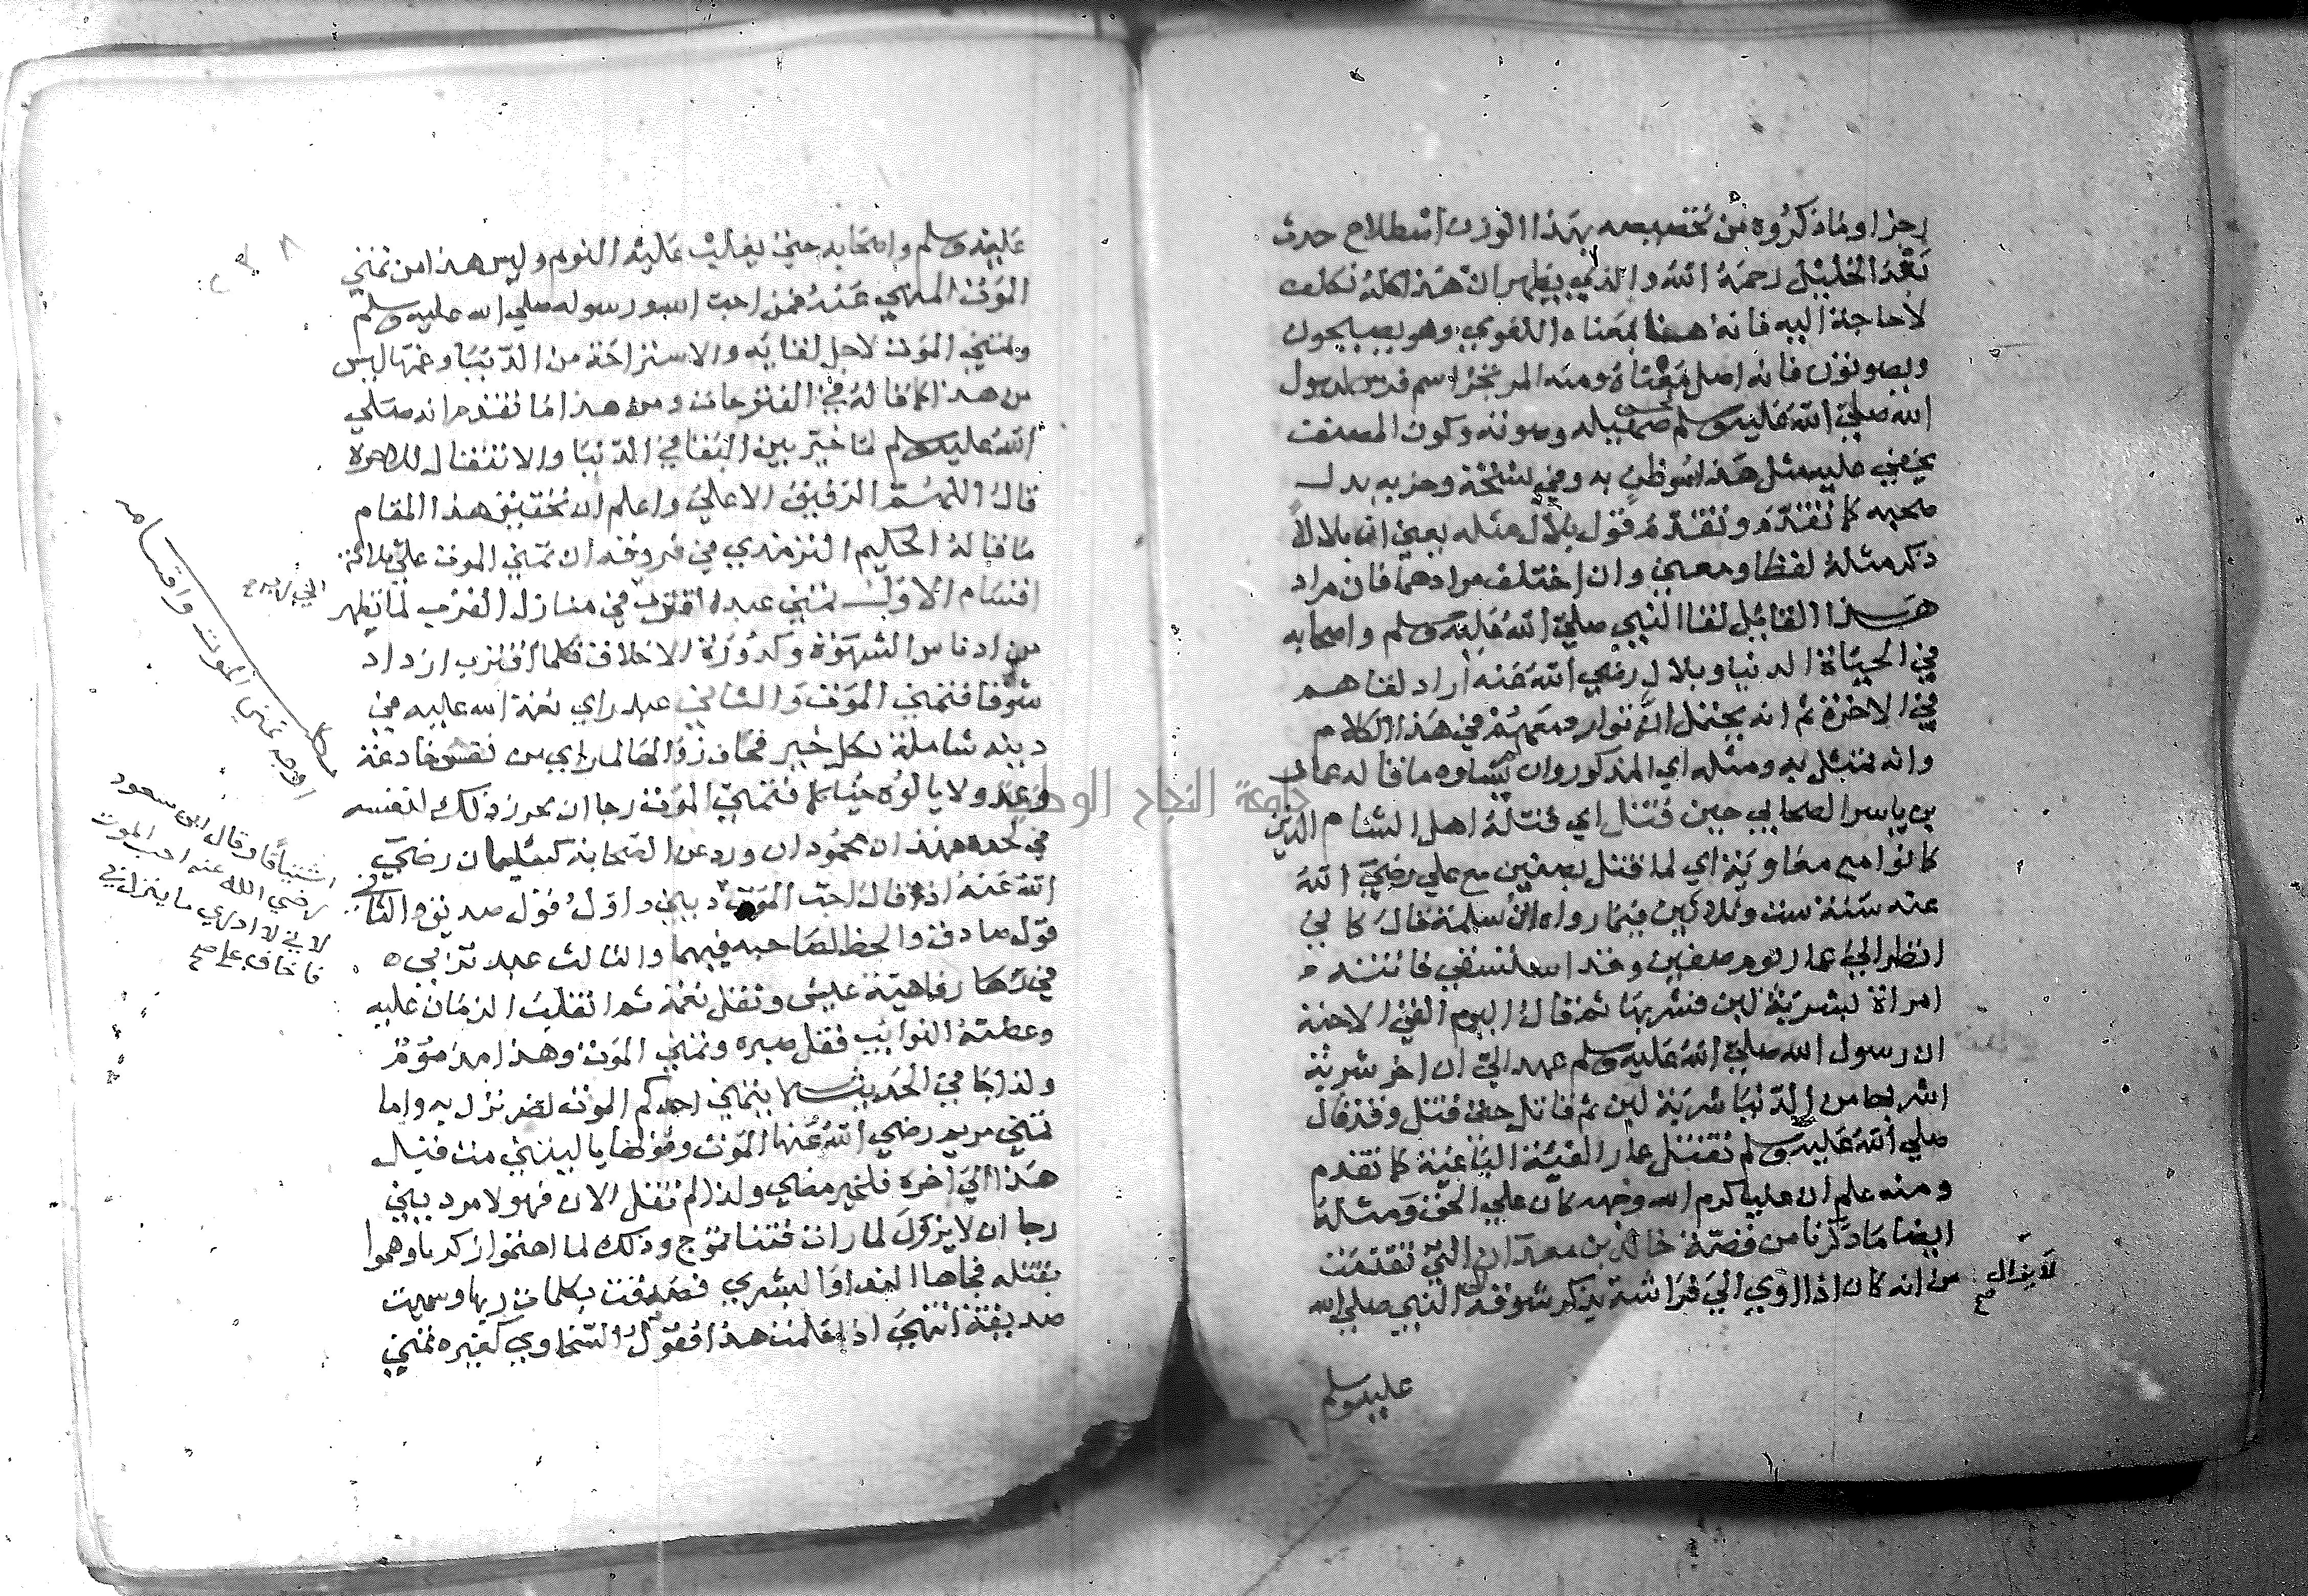 رجزا وما ذكروه من تخصيصه بهذا الوزن اصطلاح حدث
بعد الخليل رحمة الله والذي يظهر ان هذا كله تكلف
لا حاجة اليه فانه هنا بمعناه اللغوي وهو يصيحون
ويصوتون فانه اصل معناه ومنه المرتجز اسم فرس لرسول
الله صلى الله عليه وسلم لحسن صهيله وصوته وكون المصنف
يخفي عليه مثل هذا سوظن به وفي نسخة وحزبه بدل
صحبه كما تقدم وتقدم قول بلال مثله يعني ان بلالا
ذكر مثله لفظا ومعنى وان اختلف مرادهما فان مراد
هذا القائل لقا النبي صلى الله عليه وسلم واصحابه
في الحياة الدنيا وبلال رضي الله عنه اراد لقاهم
في الاخرة ثم انه يحتمل ان توارد معهم في هذا الكلام
وانه تمثل به ومثله اي المذكور وان لم يساوه ما قاله عمار
بن ياسر الصحابي حين قتل اي قتله اهل الشام الذين
كانوا مع معاوية اي لما قتل بصفين مع علي رضي الله
عنه سنة ست وثلاثين فيما رواه ابن سلمة قال كاني
انظر الى عمار يوم صفين وقد استسقى فاتته
امراة بشربة لبن فشربها ثم قال اليوم القى الاحبة
ان رسول الله صلى الله عليه وسلم عهد الي ان اخر شربة
اشربها من الدنيا شربة لبن ثم قاتل حتى قتل وقد قال
صلى الله عليه وسلم تقتل عمار الفئة الباغية كما تقدم
ومنه علم ان عليا كرم الله وجهه كان على الحق ومثلها
ايضا ما ذكرنا من قصة خالد بن معدان التي تقدمت
من انه كان اذا اوى الى فراشه لا يزال يذكر شوقه الى النبي صلى الله
عليه وسلم
عليه وسلم واصحابه حتى يغلب عليه النوم وليس هذا من تمني
الموت المنهي عنه فمن احب الله ورسوله صلى الله عليه وسلم
وتمنى الموت لاجل لقائه والاستراحة من الدنيا وغمها ليس
من هذا كما قاله في الفتوحات ومن هذا ما تقدم انه صلى
الله عليه وسلم لما خير بين البقا في الدنيا والانتقال للاخرة
قال اللهم الرفيق الاعلى واعلم ان تحقيق هذا المقام
ما قاله الحكيم الترمذي في فروقه ان تمني الموت على ثلاثة
اقسام الاول تمني عبد اقترب في منازل القرب لما تطهر
من ادناس الشهوة وكدورة الاخلاق فكلما اقترب ازداد
شوقا فتمنى الموت والثاني عبد راي نعمة الله عليه في
دينه شاملة بكل خير فخاف زوالها لما راي من نفس خادعة
وعدو لا يالوه خبالا فتمنى الموت رجا ان يحرز ذلك لنفسه
في لحده فهذان محمودان وردعن الصحابة كسليمان رضي
الله عنه اذ قال احب الموت
قول صادق والحظ لصاحبه فيهما والثالث عبد تربى
في رفاهية عيش وتقل نعمة ثم انقلب الزمان عليه
وعضته النوائب فقل صبره وتمنى الموت وهذا مذموم
ولذا جا في الحديث لا يتمنى احدكم الموت لضر نزل به واما
تمني مريم رضي الله عنها الموت وقولها يا ليتني مت قبل
هذا الى اخره فلغير مضى ولذا لم تقل الان فهو لا مر ديني
رجا ان لا يزكرك لما رات فتنا تموج وذلك لما اهتموا زكريا وهموا
بقتله فجاها الندا والبشرى فصدقت بكلمات ربها وسميت
صديقة انتهى اذا علمت هذا فقول السخاوي كغيره تمني
اوجه تمني الموت واقسامه
اشتياقا وقال ابن مسعود
رضي الله عنه احب الموت
لاني لا ادري ما ينزل بي
فاخاف علي صح